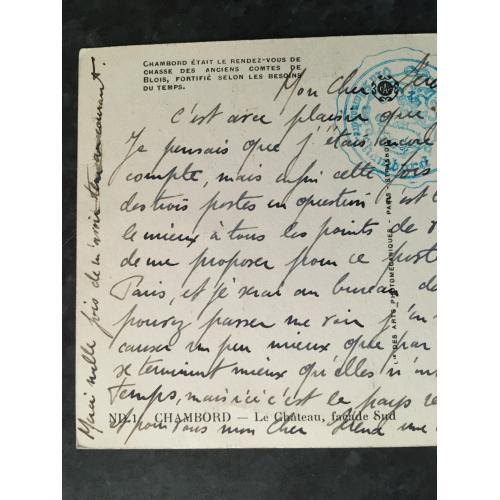 CHAMBORD ÉTAIT LE RENDEZ-VOUS DE
CHASSE DES ANCIENS COMTES DE
BLOIS, FORTIFIÉ SELON LES BESOINS
DU TEMPS.
Mon cher
C'est avec plaisir que
Je pensais que j'étais encore
compte, mais enfin cette fois
des trois postes en question c'est
le mieux à tous les points de
de me proposer pour ce poste
Paris, et je serai au bureau
pouvez passer me voir j'en
causer un peu mieux que par
se terminent mieux qu'elles n'ont
temps, mais ici c'est le pays
ND. 1. CHAMBORD — Le Château, façade Sud
et pour vous mon cher une
Merci mille fois de m'avoir tenu au courant.
Chambord
DES ARTS PHOTOMÉCANIQUES - PARIS - STRASBOURG